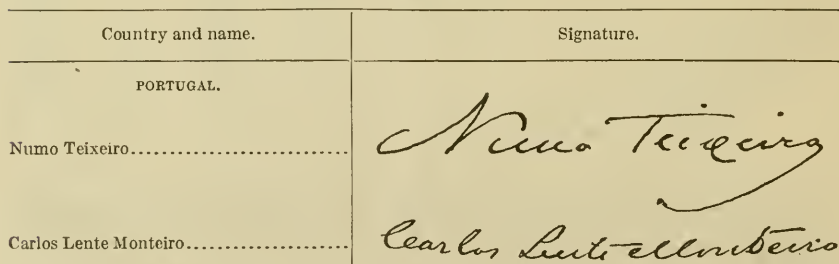 Country and name.
Signature.
PORTUGAL.
Numo Teixeiro
Nuno Teixeira
Carlos Lente Monteiro
Carlos Leite Monteiro